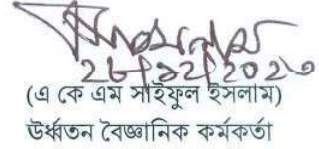 ২৮/১২/২০২৩
(এ কে এম সাইফুল ইসলাম)
উর্ধ্বতন বৈজ্ঞানিক কর্মকর্তা